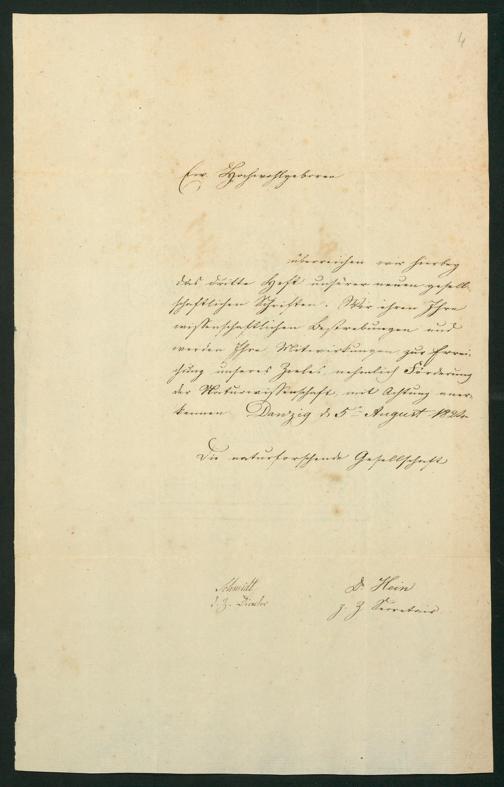 4
Ew. Hochwohlgeboren
überreichen wir hierbey
das dritte Heft unserer neuen gesell-
schaftlichen Schriften. Wir ehren Ihre
wissenschaftlichen Bestrebungen und
werden Ihre Mitwirkungen zur Errei-
chung unseres Zieles, nehmlich Förderung
der Naturwissenschaft, mit Achtung aner-
kennen. Danzig d. 5 August 1824
Die naturforschende Gesellschaft
Schmidt Dr. Hein
d. Z. Director z. Z. Secretair